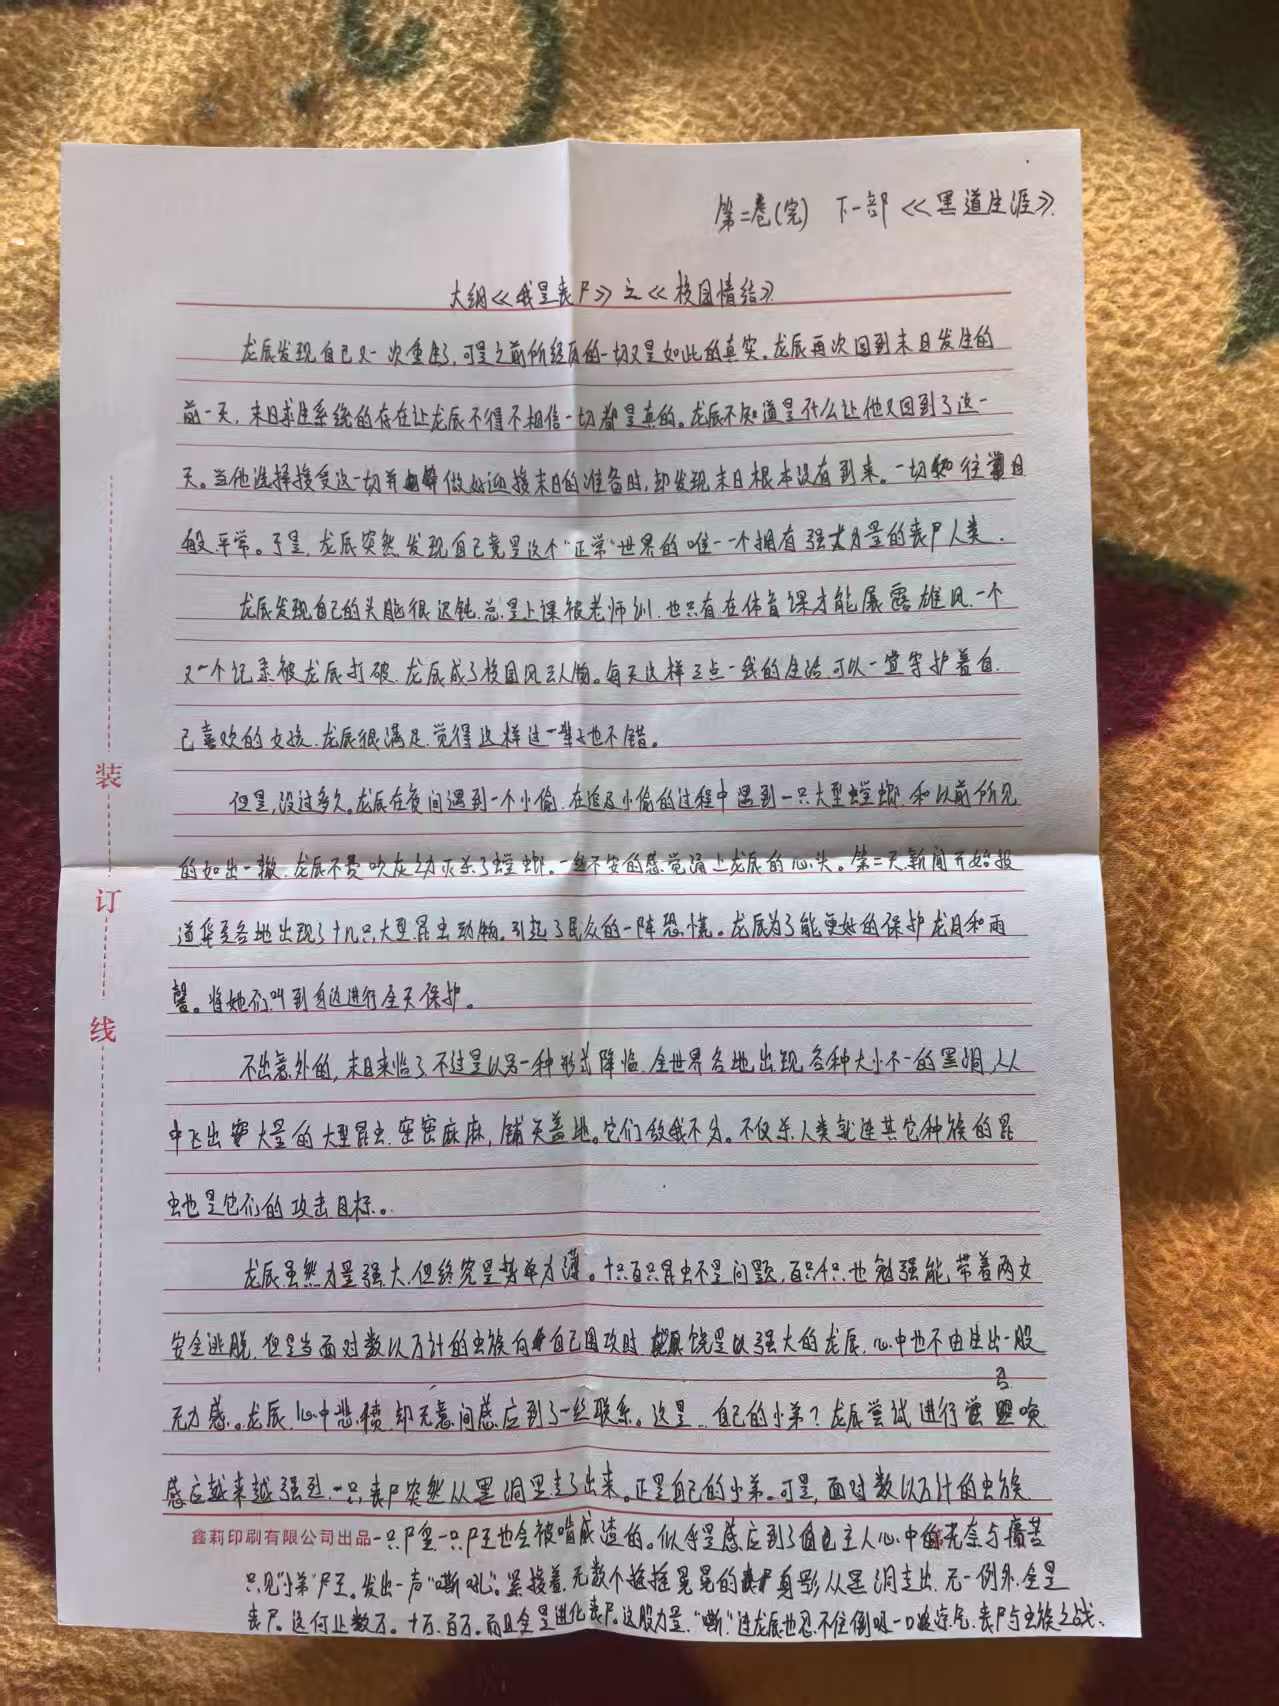 第二卷(完) 下一部《黑道生涯》.
大纲《我是丧尸》之《校园情结》
龙辰发现自己又一次重生了,可是之前所经历的一切又是如此的真实.龙辰再次回到末日发生的
前一天,末日求生系统的存在让龙辰不得不相信一切都是真的。龙辰不知道是什么让他又回到了这一
天。当他选择接受这一切并做好迎接末日的准备时,却发现末日根本没有到来。一切如往日
般平常。于是,龙辰突然发现自己竟是这个"正常"世界的唯一一个拥有强大力量的丧尸人类.
龙辰发现自己的头脑很迟钝.总是上课被老师训.也只有在体育课才能展露雄风.一个
又一个记录被龙辰打破.龙辰成了校园风云人物。每天这样三点一线的生活可以一直守护着自
己喜欢的女孩.龙辰很满足.觉得这样过一辈子也不错。
但是,没过多久,龙辰在夜间遇到一个小偷.在追及小偷的过程中遇到一只大型螳螂.和以前所见
的如出一辙.龙辰不费吹灰之力灭杀了螳螂.一丝不安的感觉涌上龙辰的心头。第二天新闻开始报
道华夏各地出现了十几只大型昆虫动物.引起了民众的一阵恐慌。龙辰为了能更好的保护龙月和雨
馨。将她们叫到身边进行全天保护。
不出意外的,末日来临了.不过是以另一种形式降临.全世界各地出现各种大小不一的黑洞,从
中飞出大量的大型昆虫.密密麻麻,铺天盖地。它们敌我不分。不仅杀人类就连其它种族的昆
虫也是它们的攻击目标。
龙辰虽然力量强大.但终究是势单力薄。十只百只昆虫不是问题,百只千只也勉强能带着两女
安全逃脱.但是当面对数以万计的虫族向自己围攻时 饶是以强大的龙辰.心中也不由生出一股
无力感。龙辰心中悲愤.却无意间感应到了一丝联系。这是..自己的小弟?龙辰尝试进行召唤
感应越来越强烈.一只丧尸突然从黑洞里走了出来。正是自己的小弟。可是,面对数以万计的虫族
鑫莉印刷有限公司出品 一只尸皇一只尸王也会被啃成渣的。似乎是感应到了自己主人心中的无奈与痛苦
只见"小弟"尸王.发出一声"嘶吼"。紧接着.无数个摇摇晃晃的身影从黑洞走出.无一例外.全是
丧尸。这何止数万。十万.百万。而且全是进化丧尸。这股力量."嘶"连龙辰也忍不住倒吸一口凉气.丧尸与虫族之战、
装
订
线